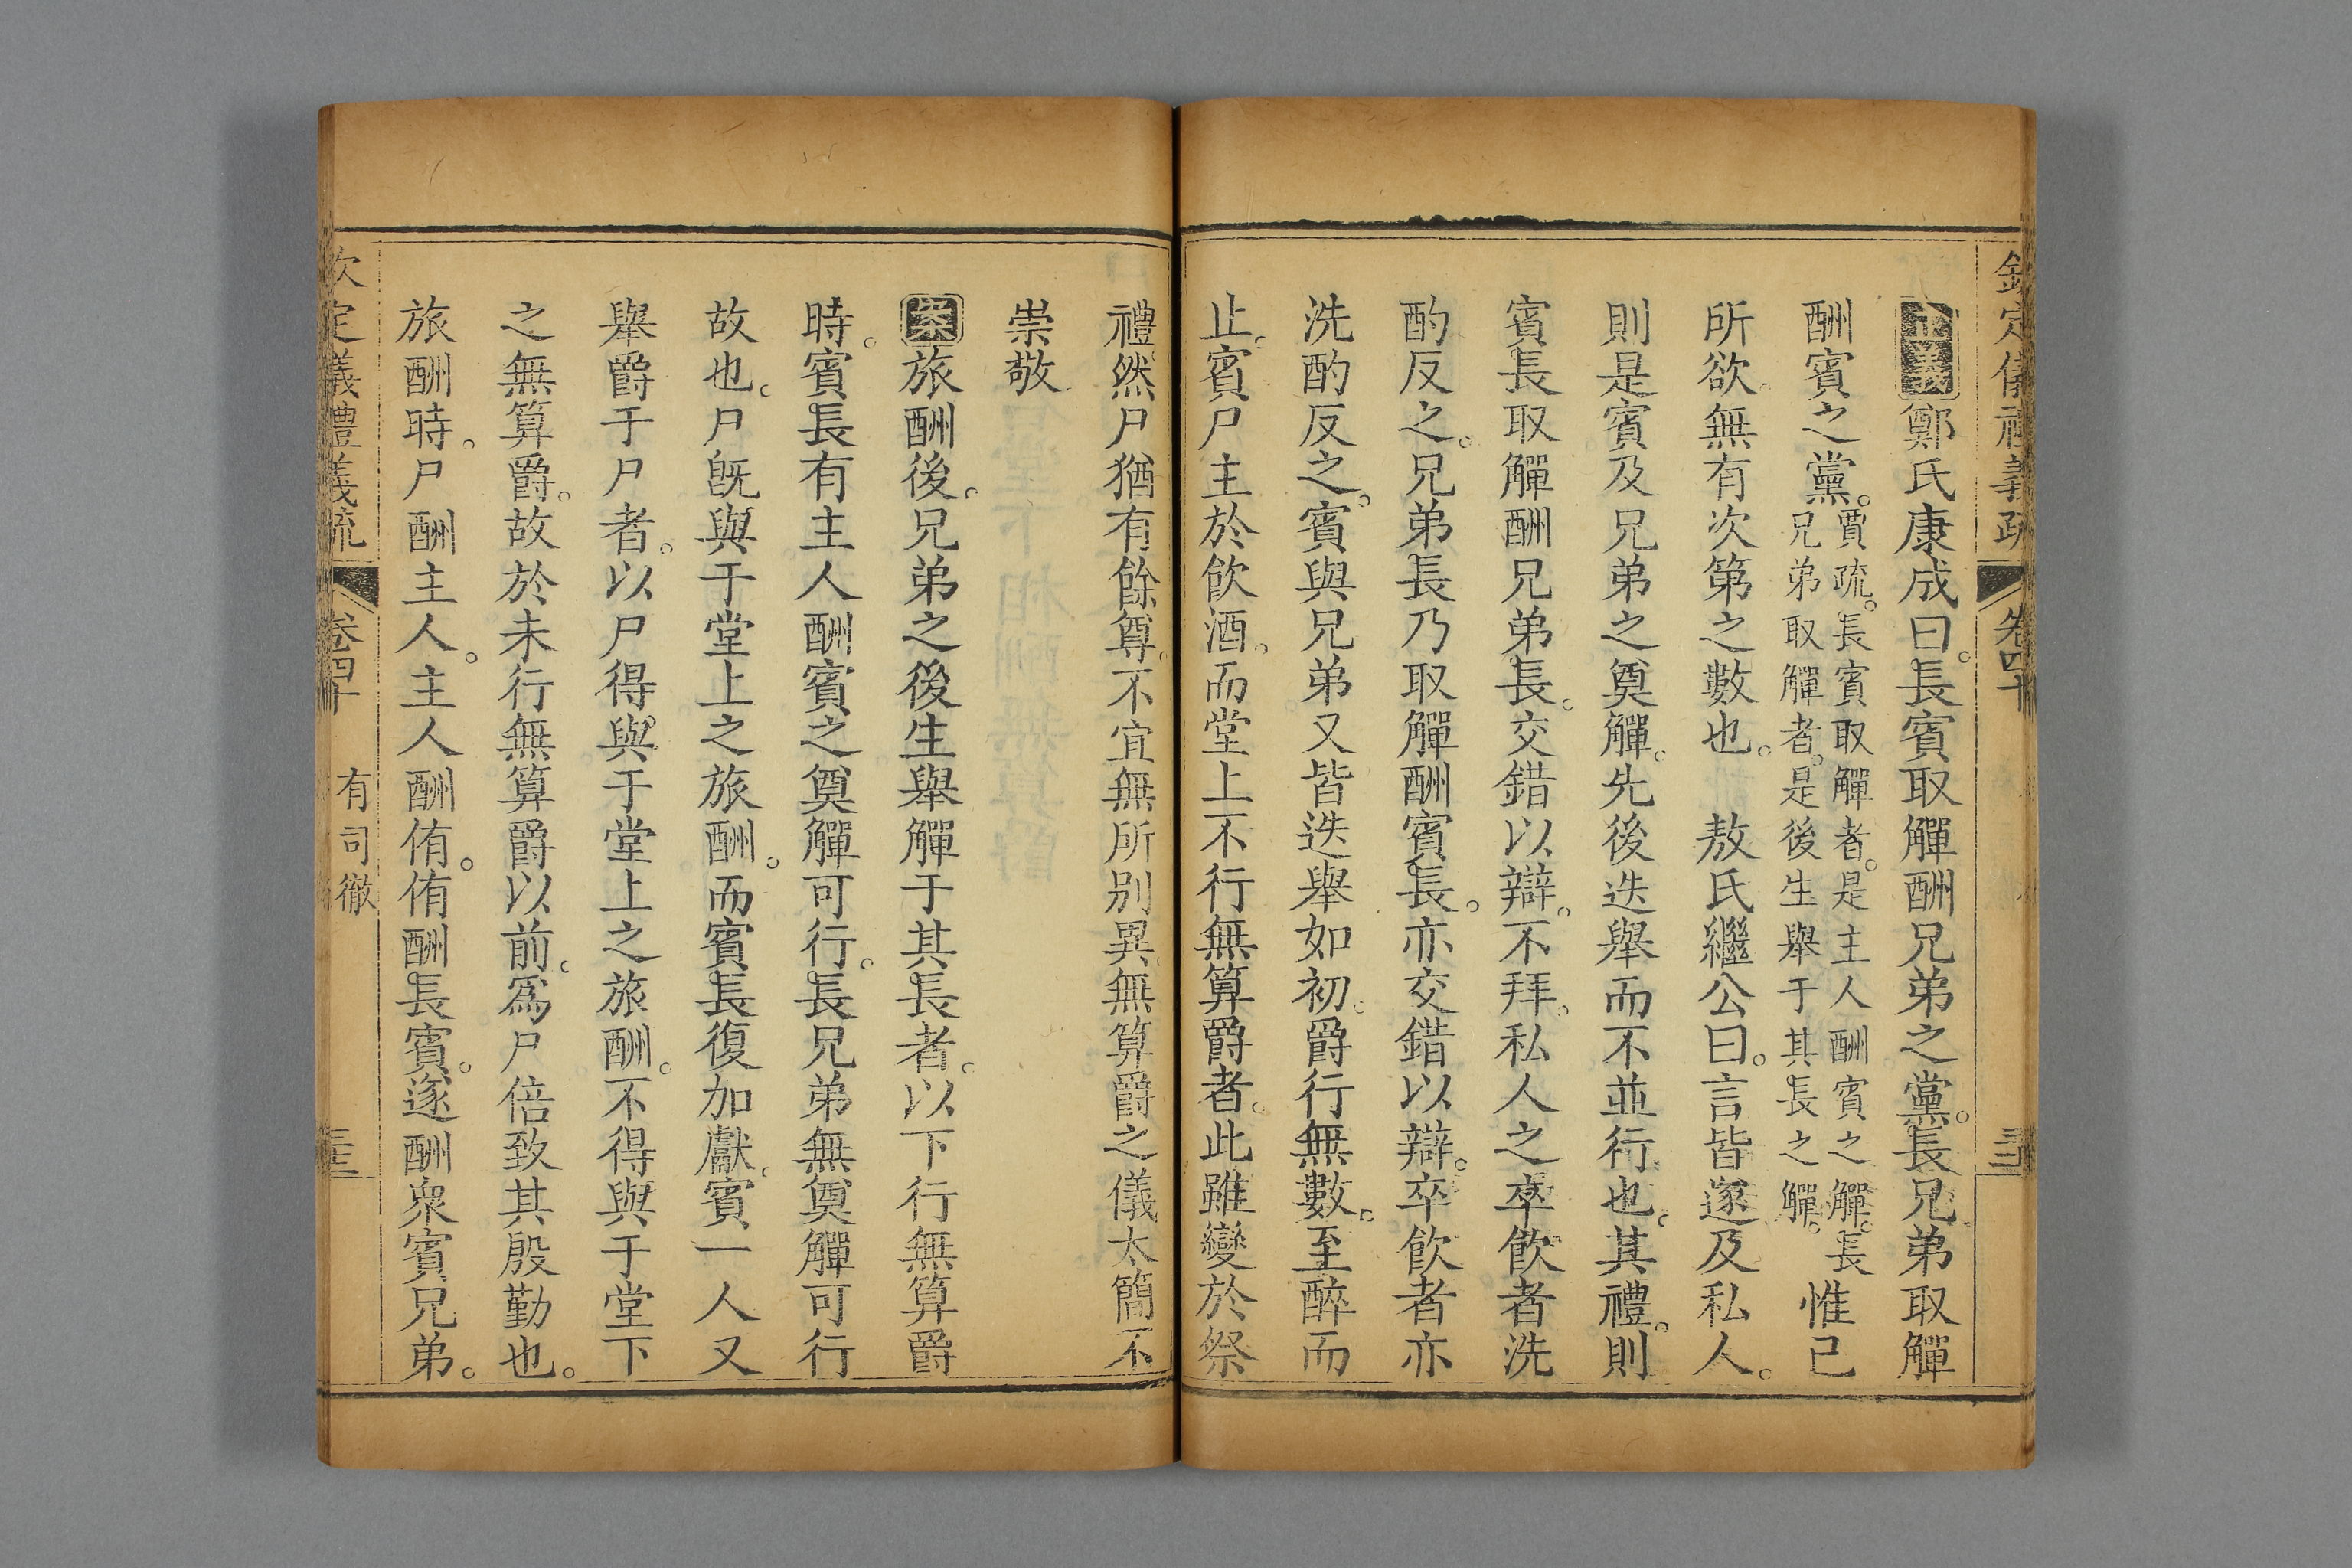 欽定儀禮義疏 卷四十
正義鄭氏康成曰。長賓取觶酬兄弟之黨。長兄弟取觶
酬賓之黨。賈疏。長賓取觶者。是主人酬賓之觶。長兄弟取觶者。是後生舉于其長之觶。惟己
所欲。無有次第之數也。 敖氏繼公曰。言皆遂及私人。
則是賓及兄弟之奠觶。先後迭舉而不並行也。其禮。則
賓長取觶酬兄弟長。交錯以辯。不拜。私人之卒飲者洗
酌反之。兄弟長乃取觶酬賓長。亦交錯以辯。卒飲者亦
洗酌反之。賓與兄弟又皆迭舉如初。爵行無數。至醉而
止。賓尸主於飲酒。而堂上不行無算爵者。此雖變於祭
禮。然尸猶有餘尊。不宜無所別異。無算爵之儀太簡。不
崇敬
案旅酬後。兄弟之後生舉觶于其長者。以下行無算爵
時。賓長有主人酬賓之奠觶可行。長兄弟無奠觶可行
故也。尸旣與于堂上之旅酬。而賓長復加獻。賓一人又
舉爵于尸者。以尸得與于堂上之旅酬。不得與于堂下
之無算爵。故於未行無算爵以前。爲尸倍致其殷勤也。
旅酬時。尸酬主人。主人酬侑。侑酬長賓。遂酬衆賓兄弟。
欽定儀禮義疏 卷四十 有司徹